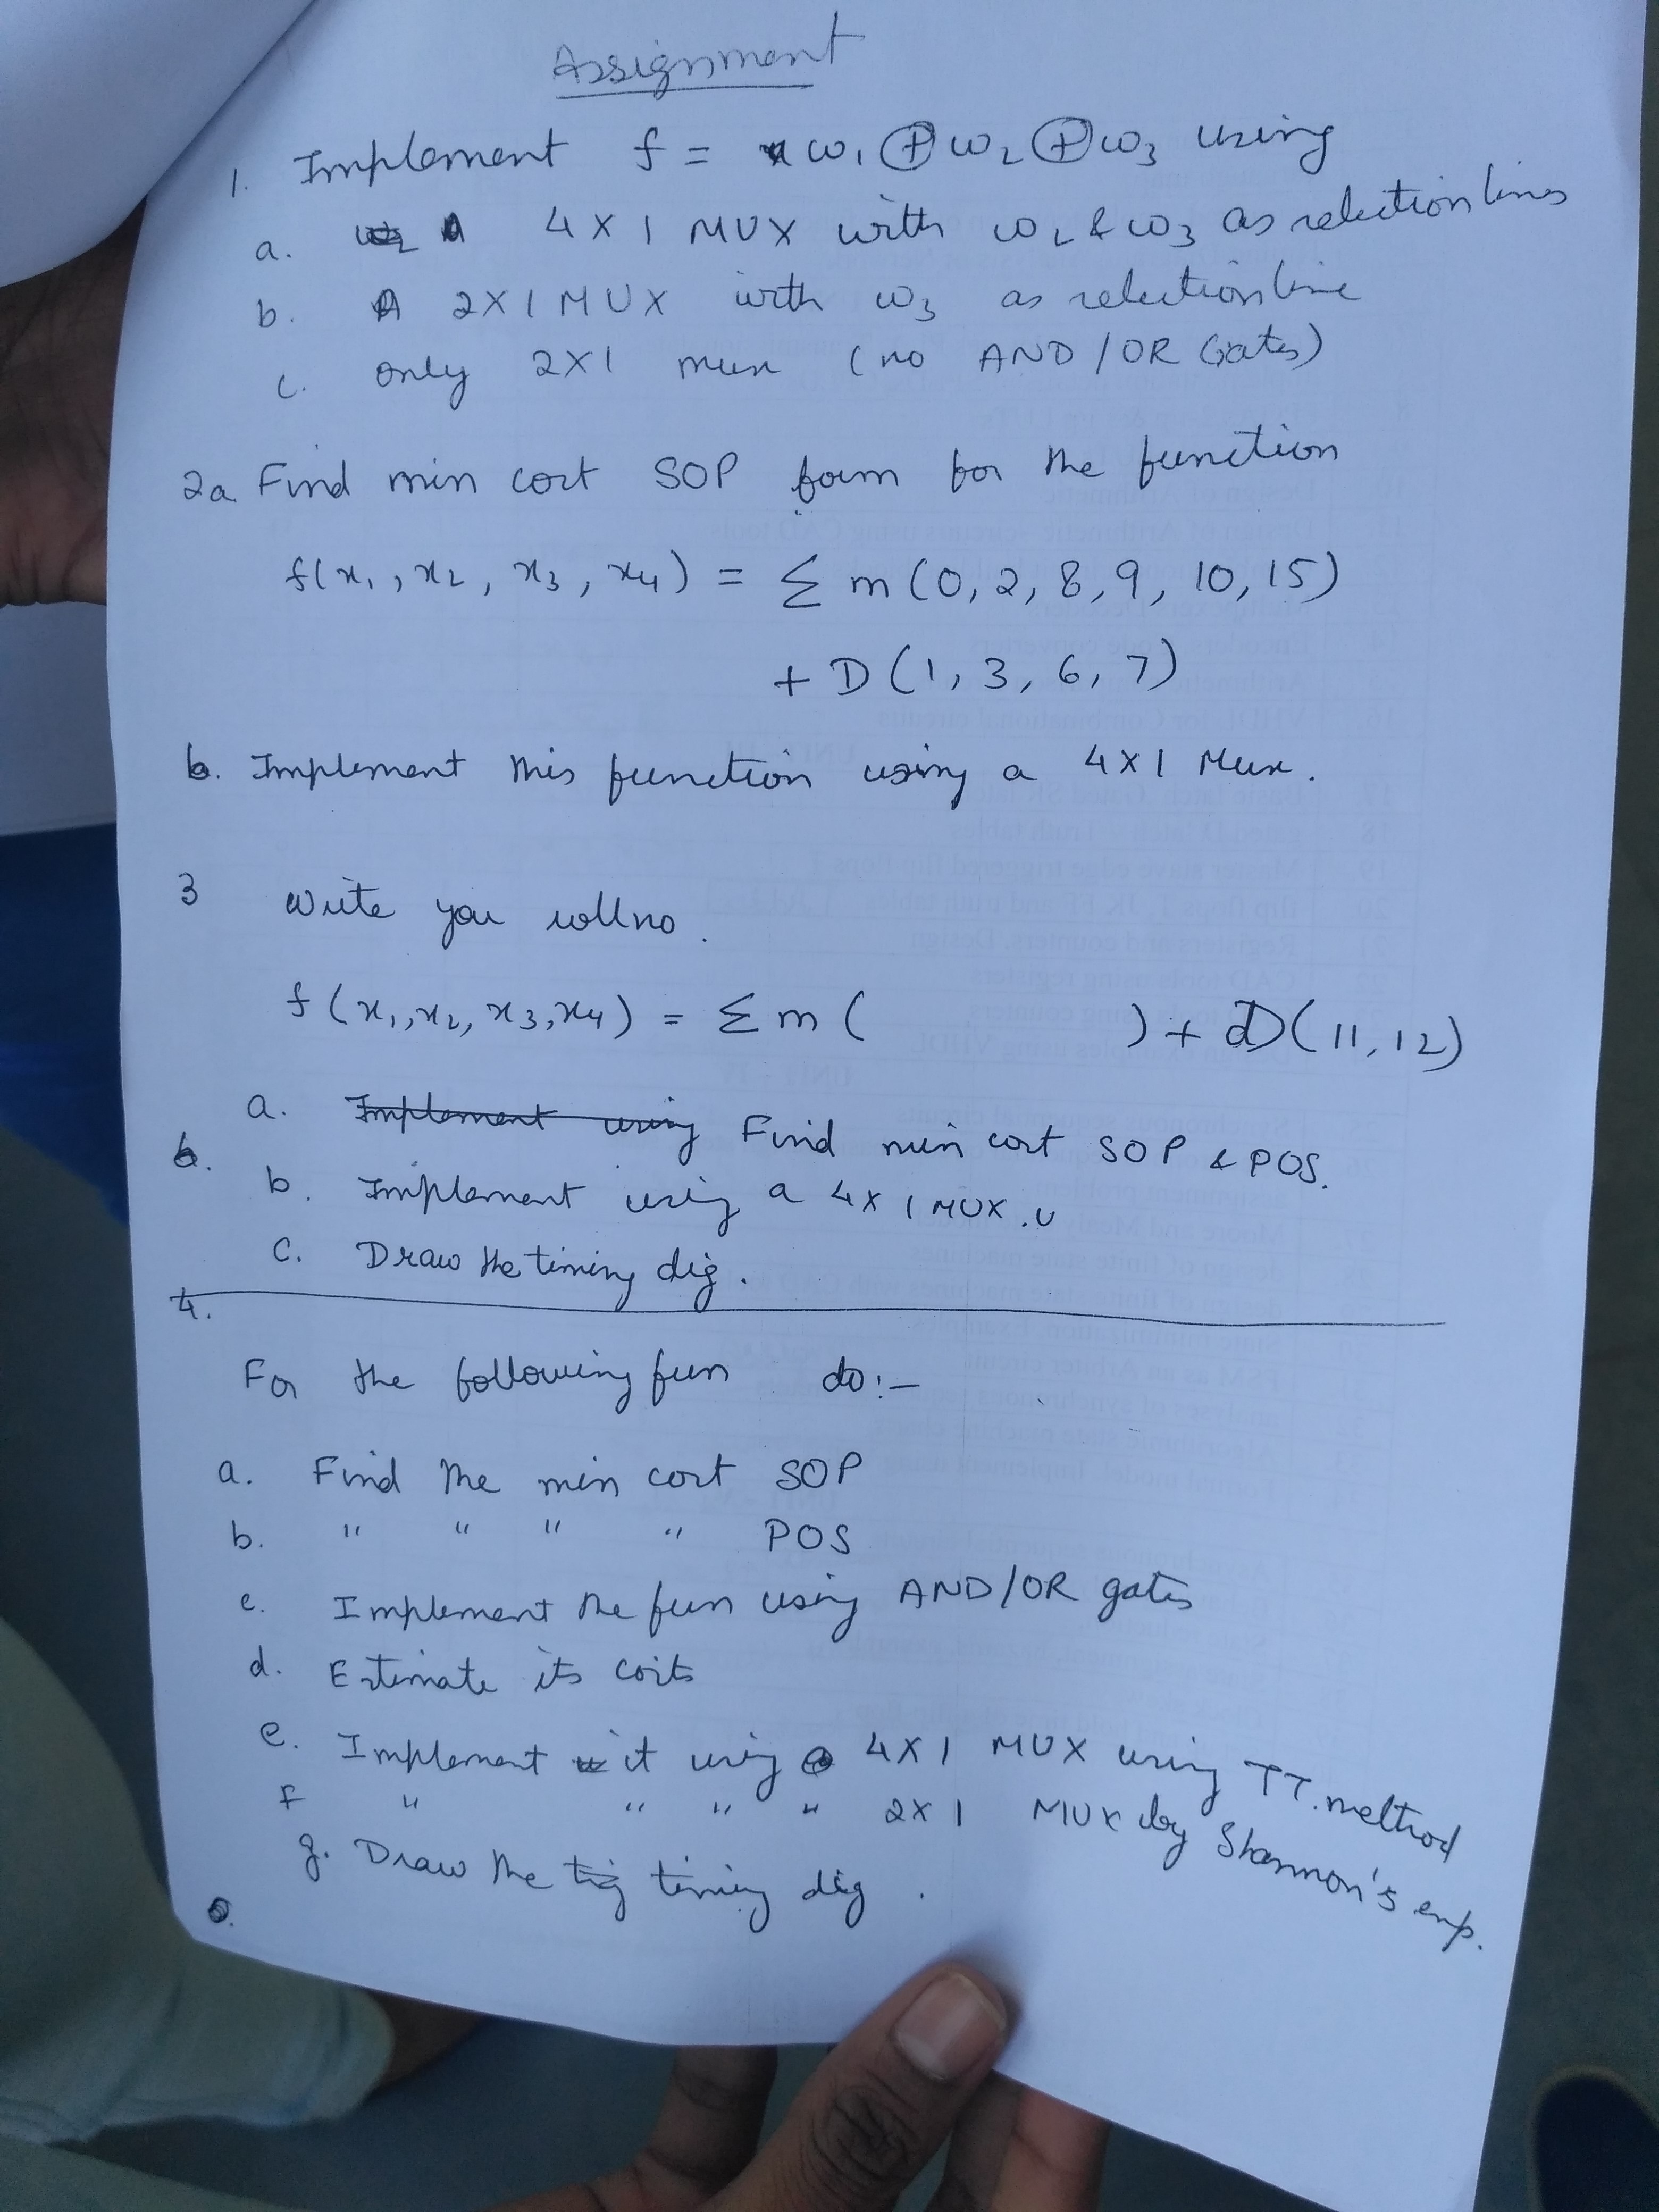 Assignment
1. Implement f = w₁ ⊕ w₂ ⊕ w₃ using
a. A 4X1 MUX with w₂ & w₃ as selection lines
b. A 2X1 MUX with w₃ as selection line
c. only 2X1 mux (no AND/OR Gates)
2a Find min cost SOP form for the function
f(x₁, x₂, x₃, x₄) = Σ m(0, 2, 8, 9, 10, 15)
+ D(1, 3, 6, 7)
b. Implement this function using a 4X1 Mux.
3 Write you roll no.
f(x₁, x₂, x₃, x₄) = Σ m (        ) + D(11, 12)
a. Implement using Find min cost SOP & POS.
6.
b. Implement using a 4X1 MUX.
c. Draw the timing dig.
4.
For the following fun do:-
a. Find the min cost SOP
b. " " " " POS
c. Implement the fun using AND/OR gates
d. Estimate its costs
e. Implement it using 4X1 MUX using TT. method
f " " " " 2X1 MUX by Shannon's exp.
g. Draw the timing dig.